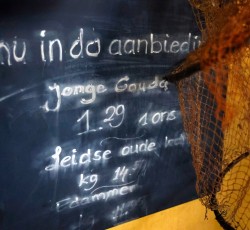 nu in do aanbiedi
Jonge Gouda
1.29 1 ons
Leidse oude
kg 14.
Edammer
11.